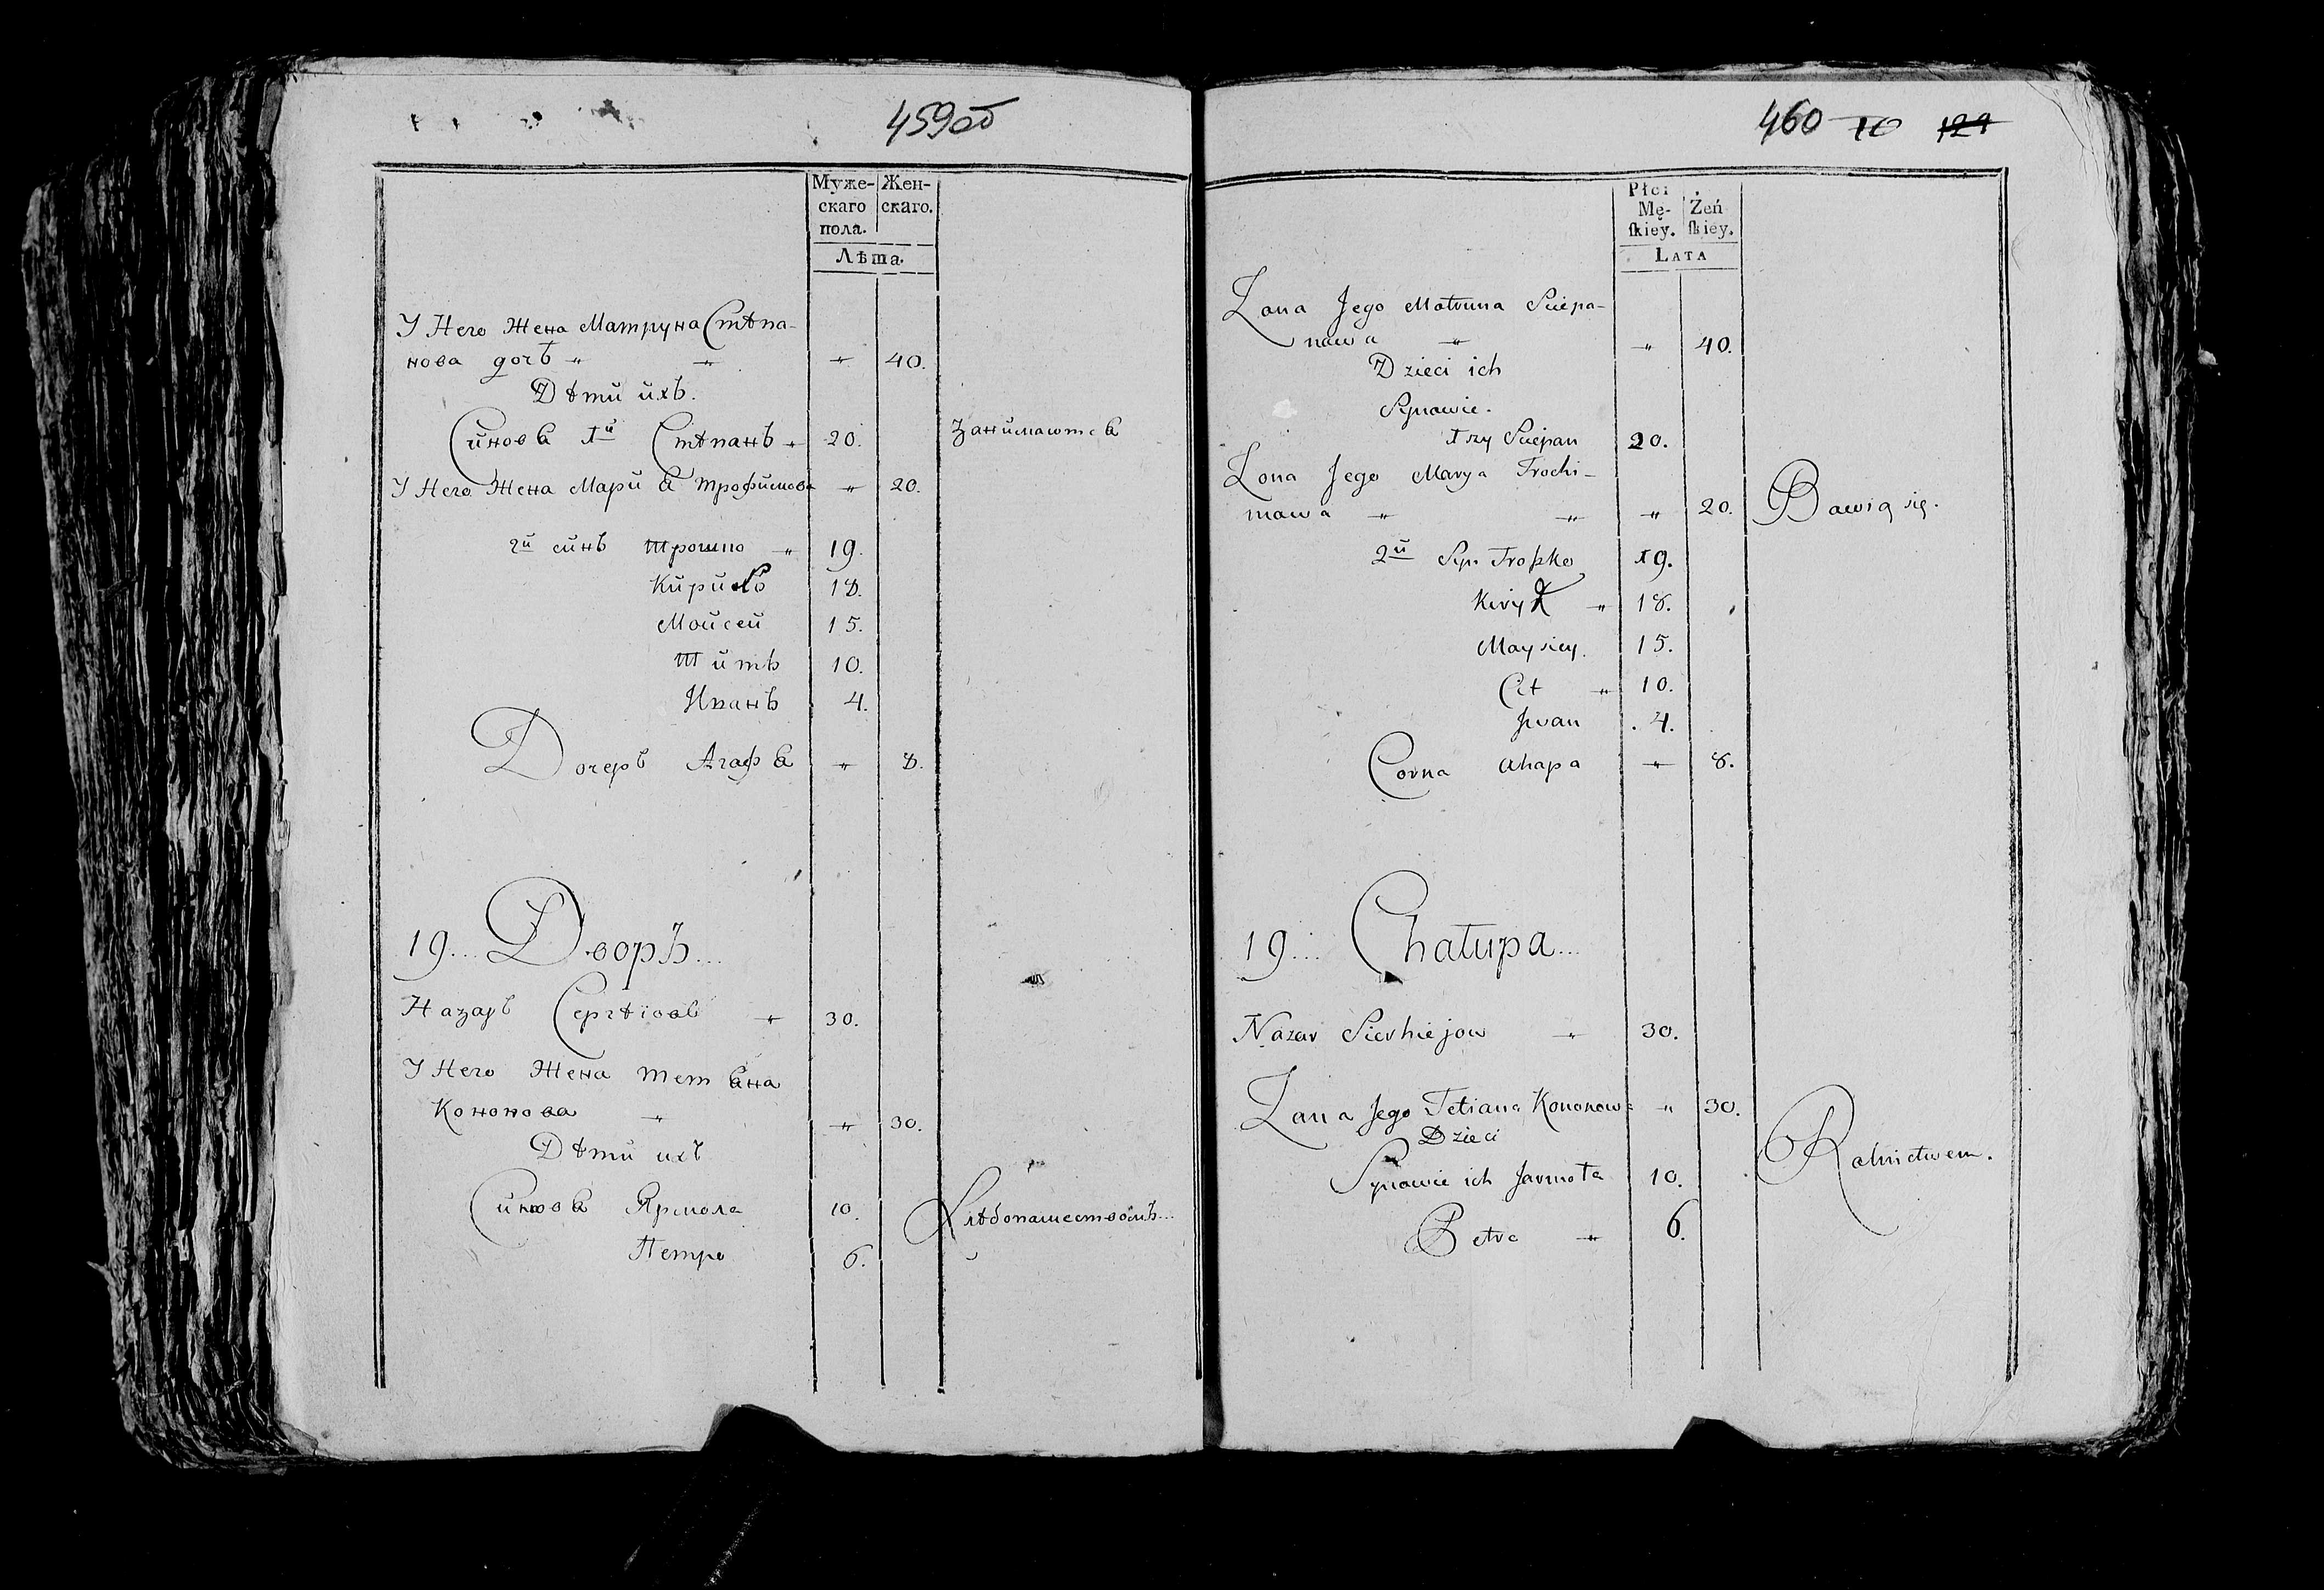 459об
Муже-
скаго
пола.
Жен-
скаго.
Лѣта.
У Него Жена Матруна Стѣпа-
нова дочь „ „ „ 40.
Дѣти ихъ.
Синовя 1й Стѣпанъ „ 20. Занимаются
У Него Жена Мария Трофимова „ 20.
2й синъ Трошко „ 19.
18.
Мойсей 15.
Титъ 10.
Иванъ 4.
Дочерь Агафя „ 8.
19... Дворъ...
Назарь Сергѣіовь „ 30.
У Него Жена Тетяна
Кононова „ „ 30.
Дѣти ихъ
Синовя Ярмола 10. Хлѣбопашествомъ...
Петро 6.
460 10 124
Płci
Mę-
ſkiey.
Żeń
ſkiey.
Lata
Żona Jego Matruna Sciepa-
nawa „ „ 40.
Dzieci ich
Synawie.
1szy Sciepan 20.
Żona Jego Marya Trochi-
mawa „ „ „ 20. Bawią się.
2й Syn Troszko 19.
18.
Maysiey. 15.
Cit „ 10.
Jwan . 4.
Corna Ahapa „ 8.
19... Chałupa...
Nazar Sierhiejow „ 30.
Żana Jego Tetiana Kononowa „ 30.
Dzieci
Synawie ich Jarmoła 10. Rolnictwem.
Petro „ 6.